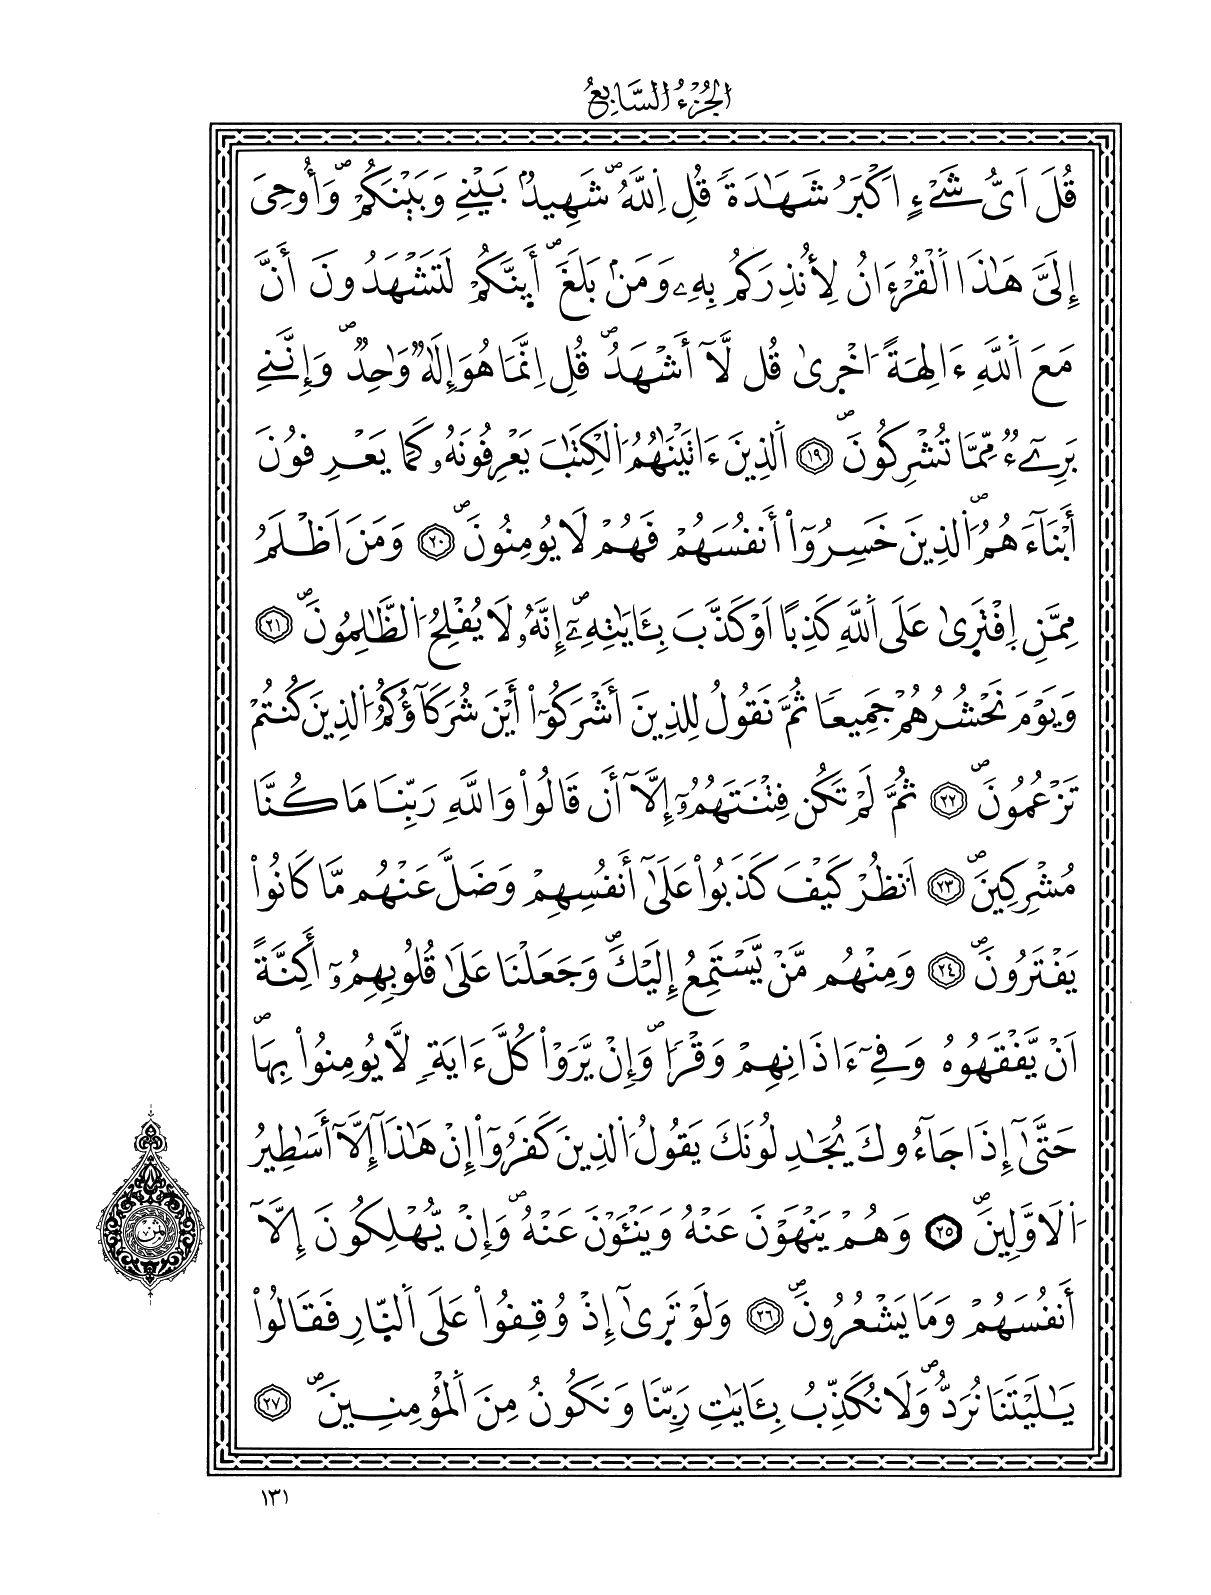 الجُزْءُ السَّابِعُ
قُلَ اَيُّ شَےْءٍ اَكْبَرُ شَهَٰدَةٗ قُلِ اِ۬للَّهُۖ شَهِيدُۢ بَيْنِے وَبَيْنَكُمْۖ وَأُوحِيَ
إِلَيَّ هَٰذَا اَ۬لْقُرْءَانُ لِأُنذِرَكُم بِهِۦ وَمَنۢ بَلَغَۖ أَئِنَّكُمْ لَتَشْهَدُونَ أَنَّ
مَعَ اَ۬للَّهِ ءَالِهَةً اُخْر۪يٰ قُل لَّآ أَشْهَدُۖ قُلِ اِنَّمَا هُوَ إِلَٰهٞ وَٰحِدٞۖ وَإِنَّنِے
بَرِےٓءٞ مِّمَّا تُشْرِكُونَۖ ١٩ اَ۬لذِينَ ءَاتَيْنَٰهُمُ اُ۬لْكِتَٰبَ يَعْرِفُونَهُۥ كَمَا يَعْرِفُونَ
أَبْنَآءَهُمُۖ اُ۬لذِينَ خَسِرُوٓاْ أَنفُسَهُمْ فَهُمْ لَا يُومِنُونَۖ ٢٠ وَمَنَ اَظْلَمُ
مِمَّنِ اِ۪فْتَر۪يٰ عَلَى اَ۬للَّهِ كَذِباً اَوْ كَذَّبَ بِـَٔايَٰتِهِۦٓۖ إِنَّهُۥ لَا يُفْلِحُ اُ۬لظَّٰلِمُونَۖ ٢١
وَيَوْمَ نَحْشُرُهُمْ جَمِيعاٗ ثُمَّ نَقُولُ لِلذِينَ أَشْرَكُوٓاْ أَيْنَ شُرَكَآؤُكُمُ اُ۬لذِينَ كُنتُمْ
تَزْعُمُونَۖ ٢٢ ثُمَّ لَمْ تَكُن فِتْنَتَهُمُۥٓ إِلَّآ أَن قَالُواْ وَاللَّهِ رَبِّنَا مَا كُنَّا
مُشْرِكِينَۖ ٢٣ اَ۟نظُرْ كَيْفَ كَذَبُواْ عَلَيٰٓ أَنفُسِهِمْ وَضَلَّ عَنْهُم مَّا كَانُواْ
يَفْتَرُونَۖ ٢٤ وَمِنْهُم مَّنْ يَّسْتَمِعُ إِلَيْكَۖ وَجَعَلْنَا عَلَيٰ قُلُوبِهِمُۥٓ أَكِنَّةً
اَنْ يَّفْقَهُوهُ وَفِےٓ ءَاذَانِهِمْ وَقْراٗۖ وَإِنْ يَّرَوْاْ كُلَّ ءَايَةٖ لَّا يُومِنُواْ بِهَاۖ
حَتَّيٰٓ إِذَا جَآءُوكَ يُجَٰدِلُونَكَ يَقُولُ اُ۬لذِينَ كَفَرُوٓاْ إِنْ هَٰذَآ إِلَّآ أَسَٰطِيرُ
اُ۬لَاوَّلِينَۖ ٢٥ وَهُمْ يَنْهَوْنَ عَنْهُ وَيَنْـَٔوْنَ عَنْهُۖ وَإِنْ يُّهْلِكُونَ إِلَّآ
أَنفُسَهُمْ وَمَا يَشْعُرُونَۖ ٢٦ وَلَوْ تَر۪يٰٓ إِذْ وُقِفُواْ عَلَى اَ۬لنّ۪ارِ فَقَالُواْ
يَٰلَيْتَنَا نُرَدُّۖ وَلَا نُكَذِّبُ بِـَٔايَٰتِ رَبِّنَا وَنَكُونُ مِنَ اَ۬لْمُؤْمِنِينَۖ ٢٧
١٣١